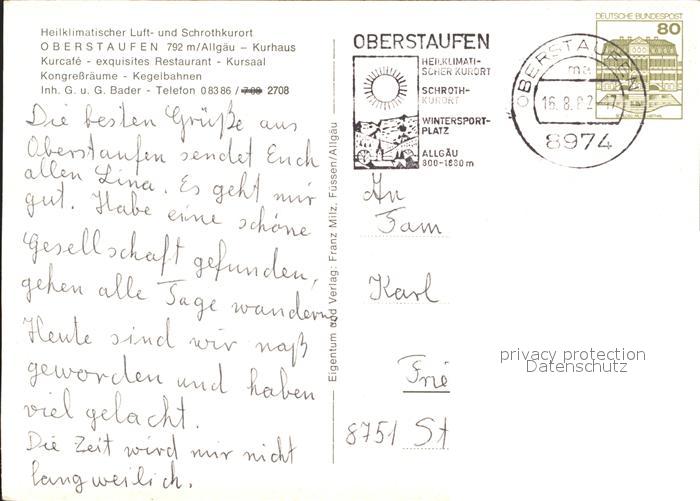 Heilklimatischer Luft- und Schrothkurort
OBERSTAUFEN 792 m/Allgäu – Kurhaus
Kurcafé - exquisites Restaurant - Kursaal
Kongreßräume - Kegelbahnen
Inh. G. u. G. Bader - Telefon 08386 / 2708
Die besten Grüße aus
Oberstaufen sendet Euch
allen Lina. Es geht mir
gut. Habe eine schöne
Gesellschaft gefunden,
gehen alle Tage wandern.
Heute sind wir naß
geworden und haben
viel gelacht.
Die Zeit wird mir nicht
langweilich.
Eigentum und Verlag: Franz Milz, Füssen/Allgäu
OBERSTAUFEN
HEILKLIMATI-
SCHER KURORT
SCHROTH-
KURORT
WINTERSPORT-
PLATZ
ALLGÄU
800-1680 m
OBERSTAUFEN
16.8.82
8974
DEUTSCHE BUNDESPOST
80
An
Fam
Karl
Frie
8751 St
privacy protection
Datenschutz